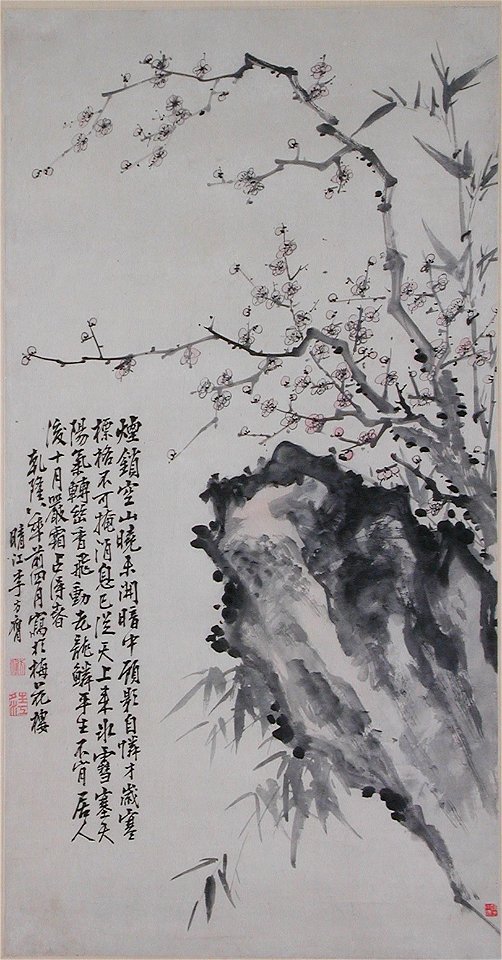 煙鎖空山曉未開暗中顧影自憐才歲寒
標格不可掩消息已從天上來冰雪塞天
陽氣轉香飛動老龍鱗平生不肯居人
後十月嚴霜占得春
乾隆八年前四月寫於梅花樓
晴江李方膺